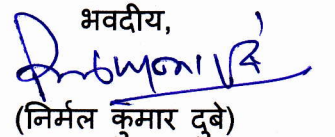 भवदीय,
(निर्मल कुमार दुबे)